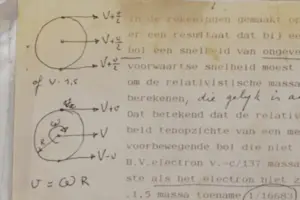 V+
of V - 1,5
V+v
V
V-v
v = ω R
in de
er een resultaat dat bij ee
bol een snelheid van ongev
voorwaartse snelheid moest
om de relativistische massa
berekenen, die gelijk is aa
Dat betekend dat de relativ
heid tenopzichte van een me
voorbewegende bol die niet
B.V.electron v.-c/137 massa
ste als het electron niet z
.1,5 massa toename